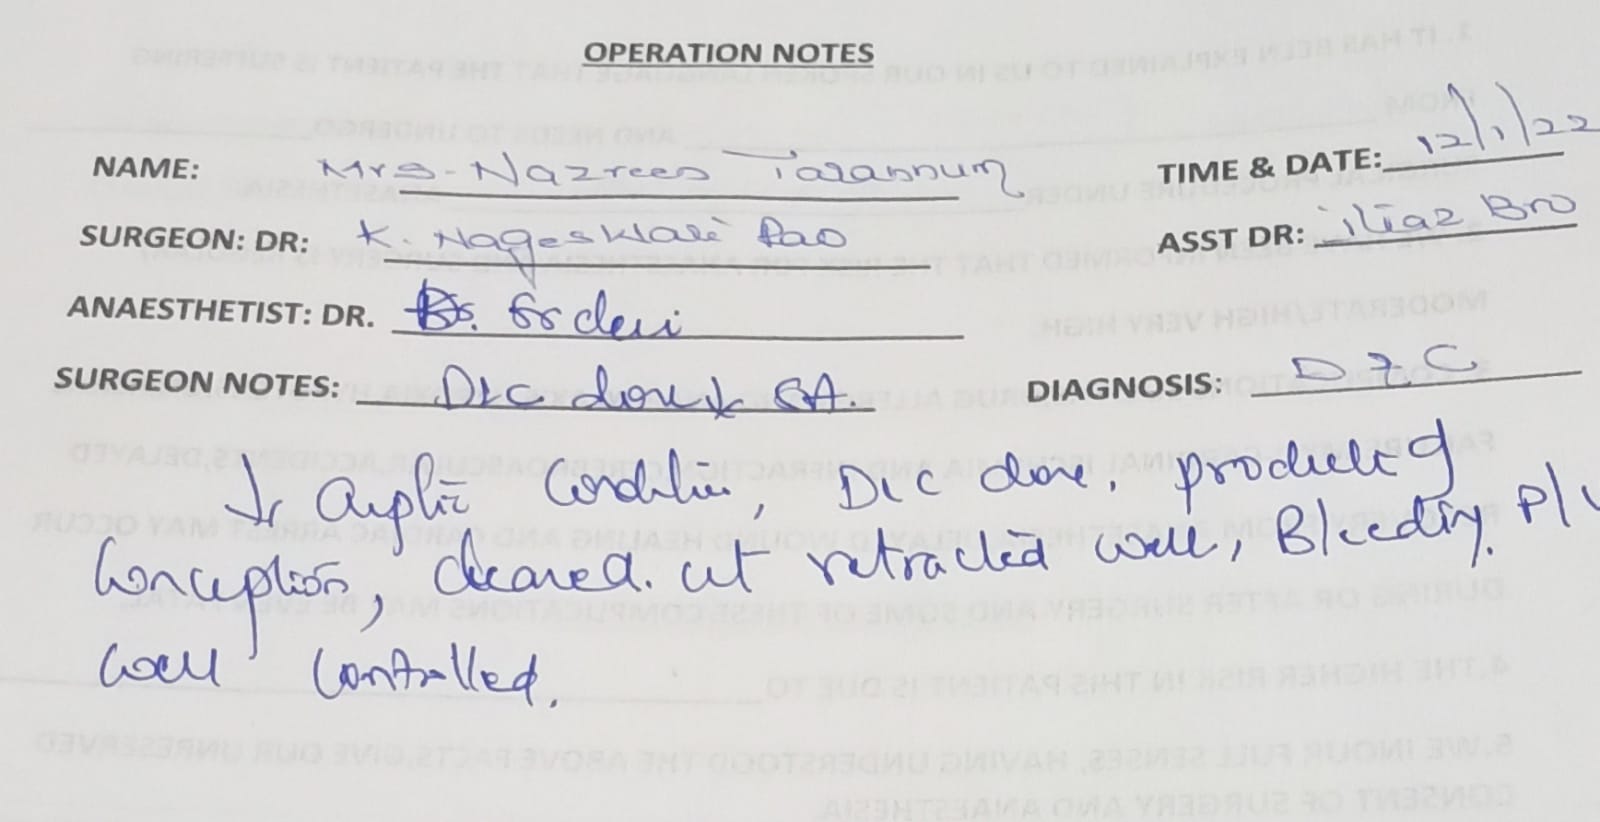 OPERATION NOTES
NAME: Mrs. Nazreen Tarannum TIME & DATE: 12/1/22
SURGEON: DR: K. Nageswari Rao ASST DR: iliaz Bro
ANAESTHETIST: DR. Dr.
SURGEON NOTES: D&C done GA. DIAGNOSIS: D & C
Aseptic Condition, D&C done, products of
Conception, cleared. ut retracted well, Bleeding P/V
well controlled.